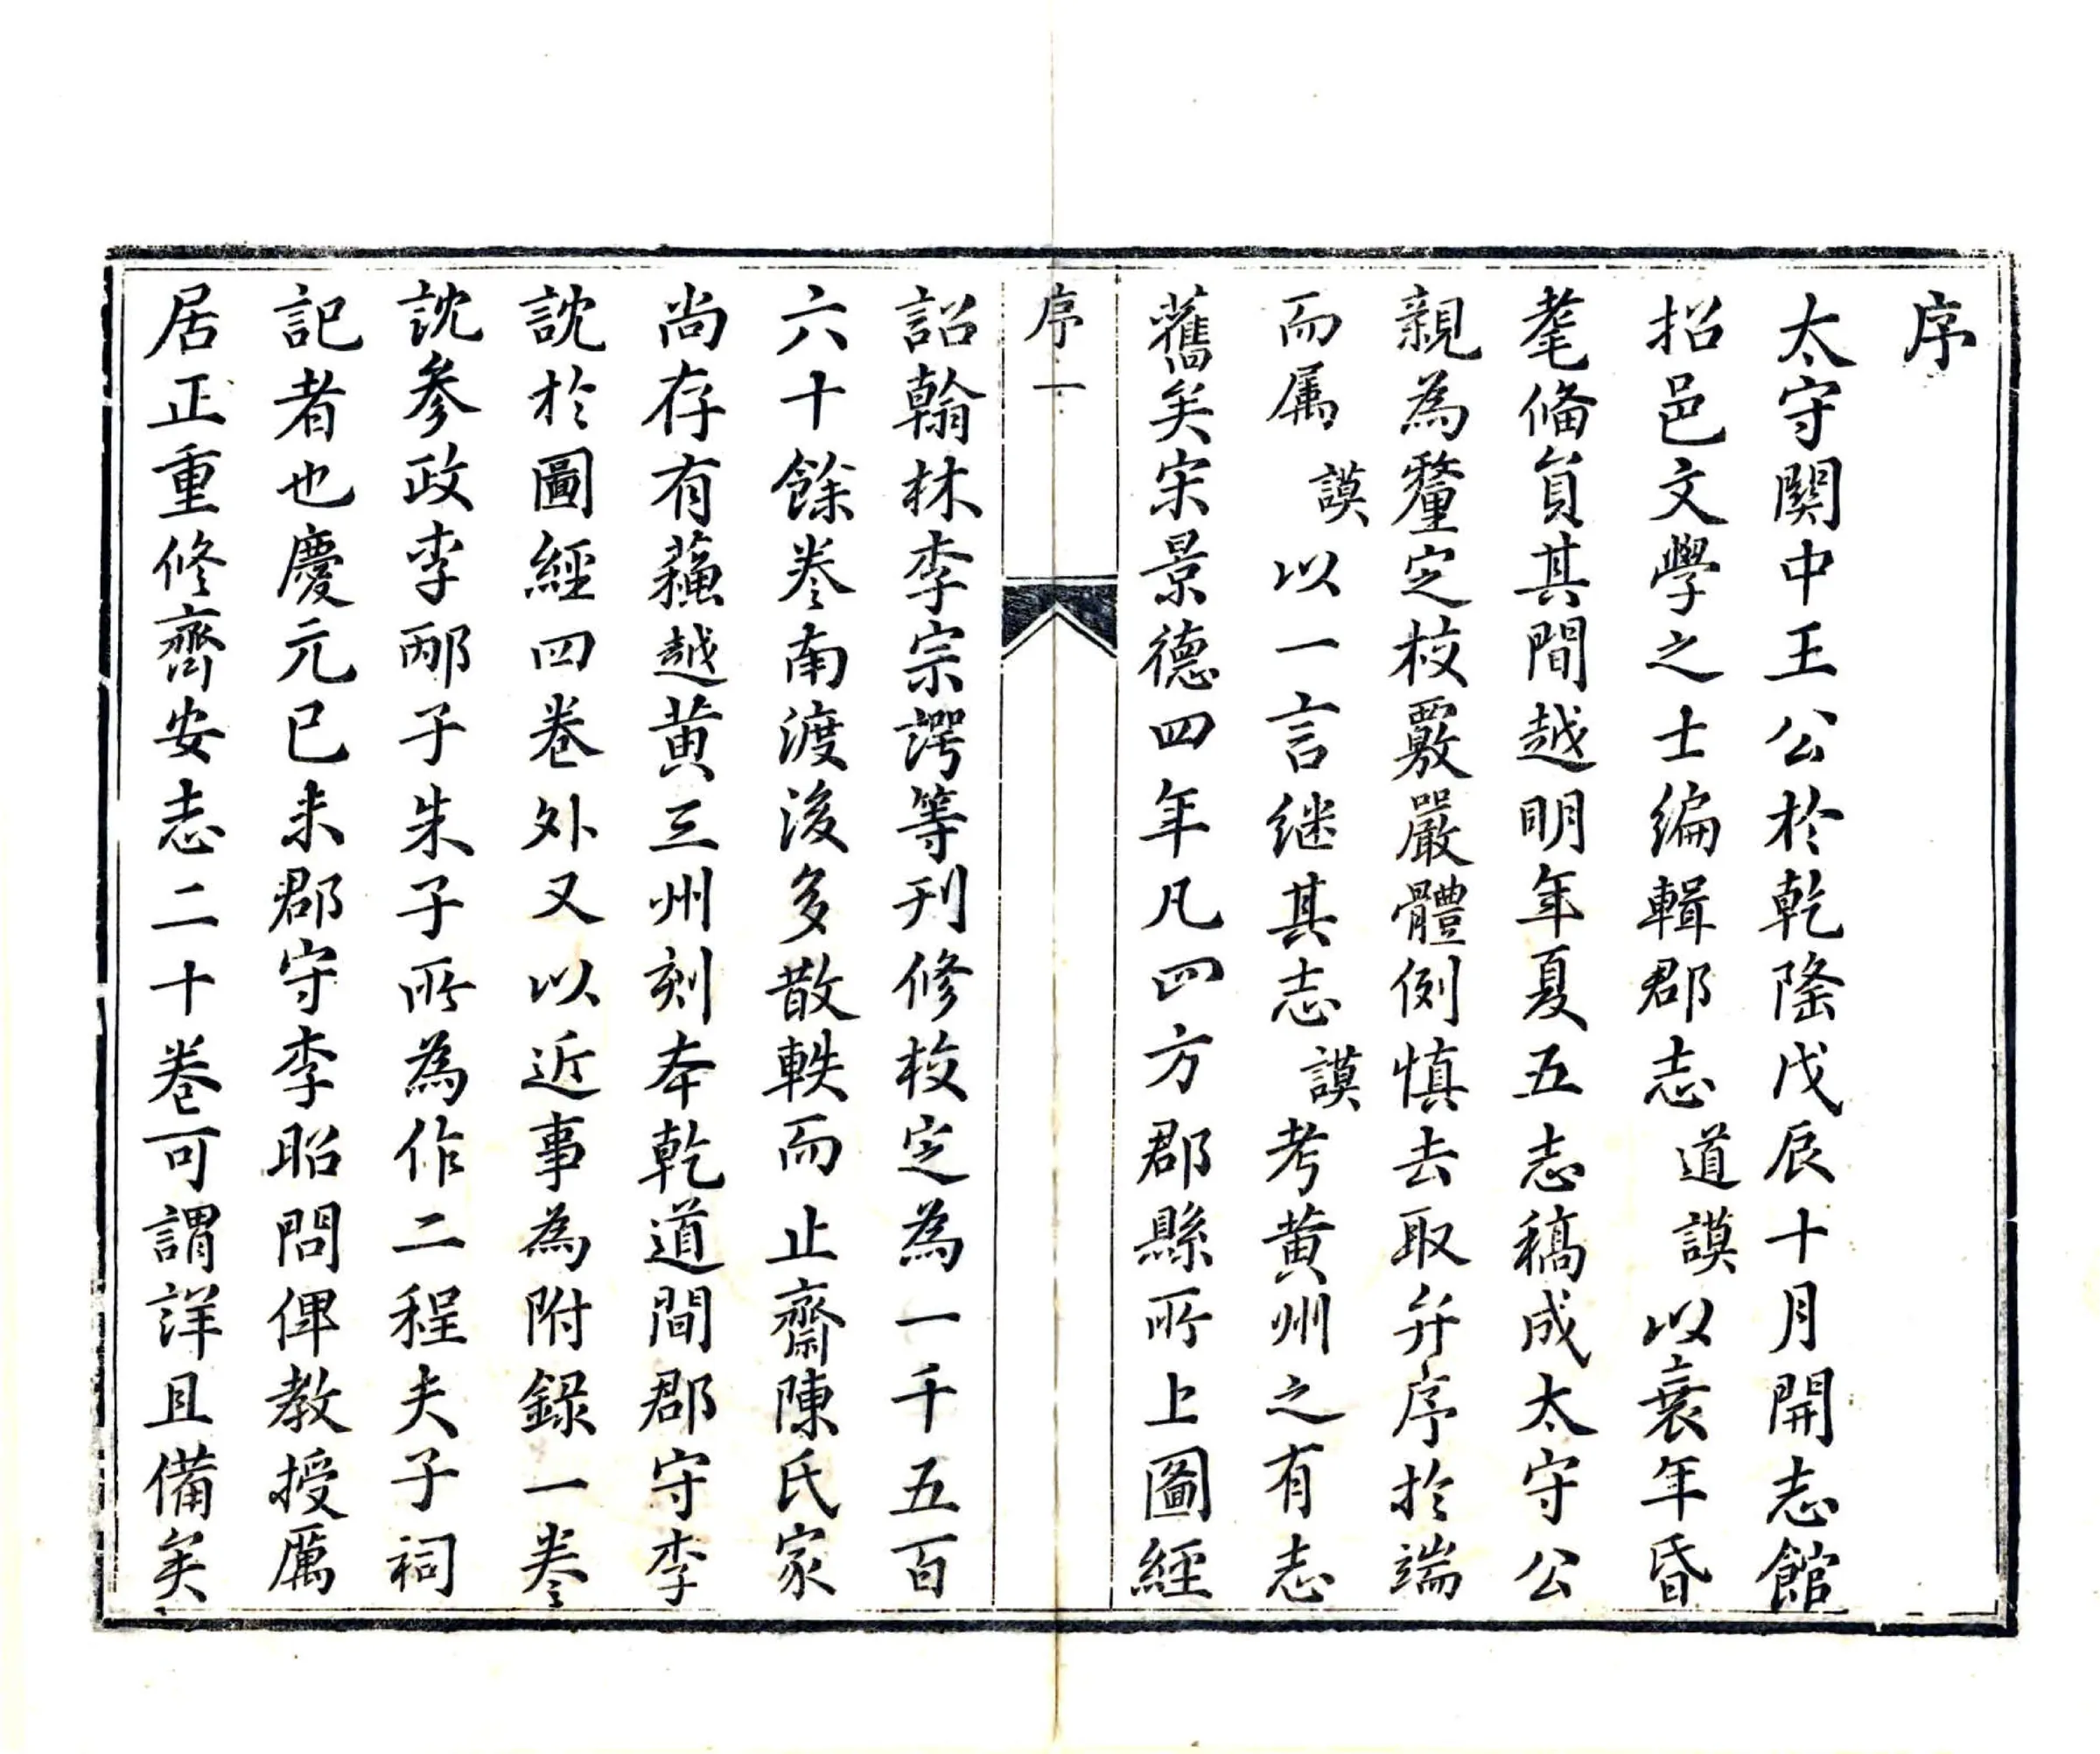 序
太守關中王公於乾隆戊辰十月開志館
招邑文學之士編輯郡志道謨以衰年昏
耄俻員其間越明年夏五志稿成太守公
親為釐定校覈嚴體例慎去取弁序於端
而属謨以一言继其志謨考黄州之有志
舊矣宋景德四年凡四方郡縣所上圖經
序 一
詔翰林李宗諤等刋修校定為一千五百
六十餘卷南渡後多散軼而止齋陳氏家
尚存有蘓越黄三州刻本乾道間郡守李
訦於圖經四卷外又以近事為附録一卷
訦参政李邴子朱子所為作二程夫子祠
記者也慶元已未郡守李昭問俾教授厲
居正重修齊安志二十卷可謂詳且備矣